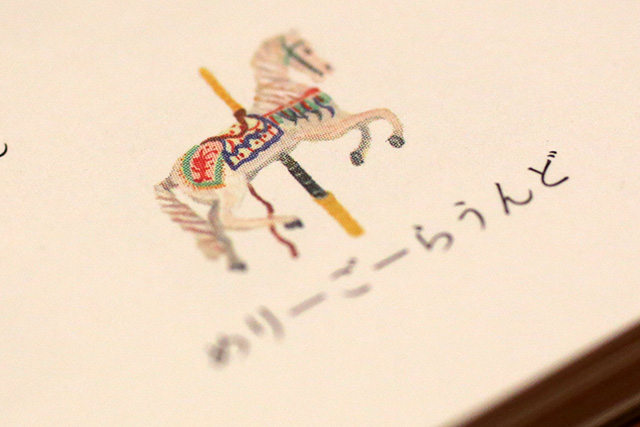 めりーごーらうんど